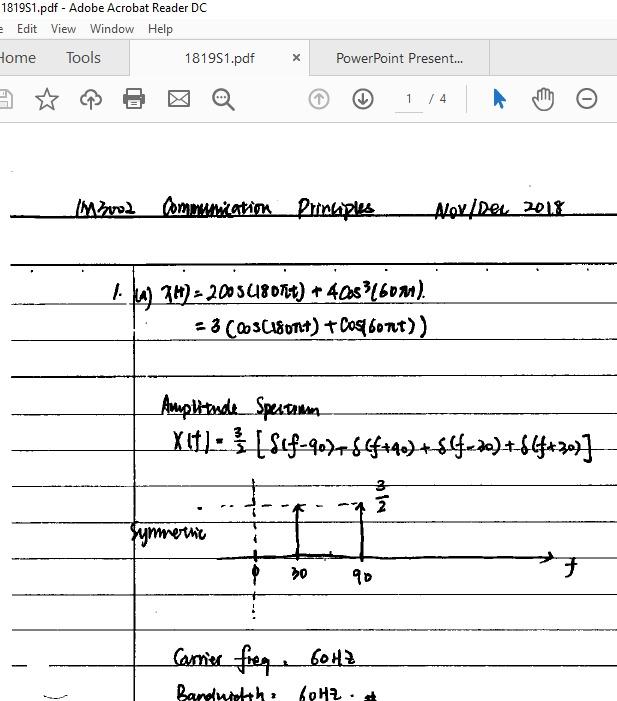 1819S1.pdf - Adobe Acrobat Reader DC
Edit View Window Help
Home Tools 1819S1.pdf × PowerPoint Present...
1 / 4
IM3002 Communication Principles Nov/Dec 2018
1. (a) x(t) = 2cos(180πt) + 4cos³(60πt).
= 3 (cos(180πt) + cos(60πt))
Amplitude Spectrum
X(f) = 3/2 [δ(f-90)+δ(f+90)+δ(f-30)+δ(f+30)]
3/2
Symmetric
0 30 90 f
Carrier freq = 60Hz
Bandwidth = 60Hz · #